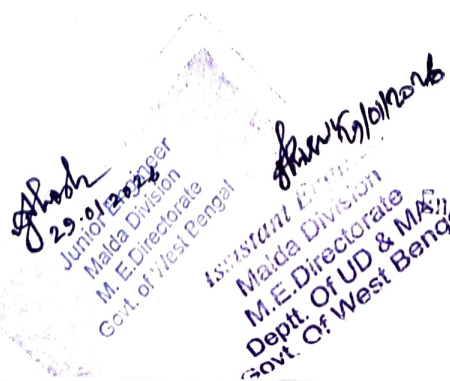 Ghosh
29.01.2026
Junior Engineer
Malda Division
M. E. Directorate
Govt. of West Bengal
Assistant Engineer
Malda Division
M.E. Directorate
Deptt. Of UD & MA
Govt. Of West Beng